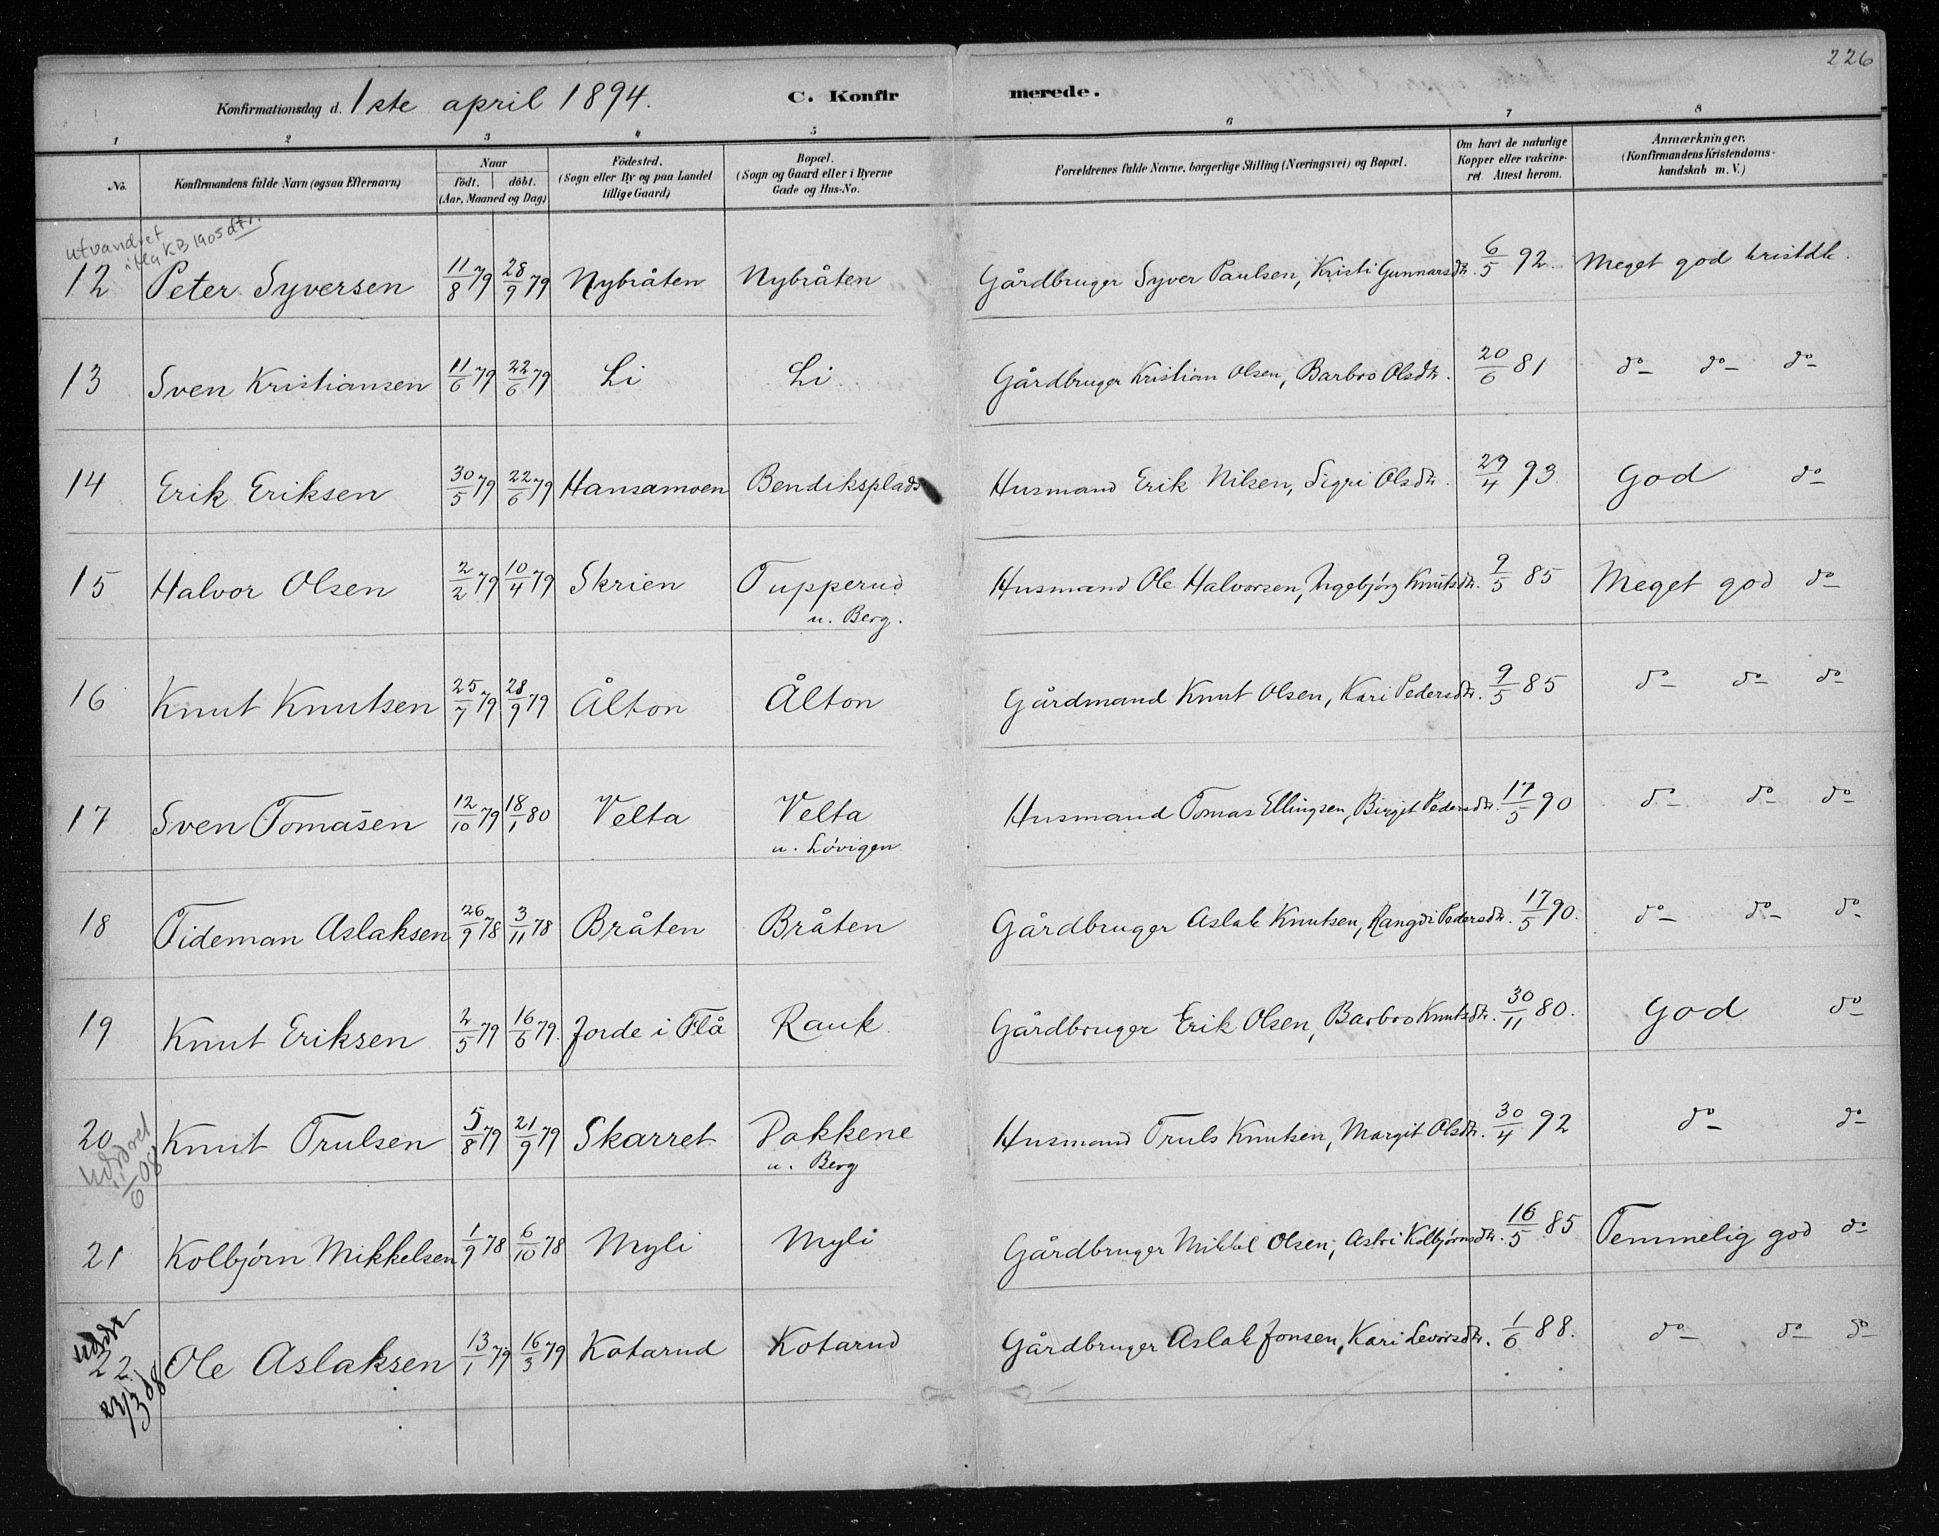 226
Konfirmationsdag d. 1ste april 1894. C. Konfirmerede.
1 2 3 4 5 6 7 8
No. Konfirmandens fulde Navn (ogsaa Efternavn) Naar födt. döbt. (Aar, Maaned og Dag) Födested. (Sogn eller By og paa Landet tillige Gaard) Bopæl. (Sogn og Gaard eller i Byerne Gade og Hus-No. Forældrenes fulde Navne, borgerlige Stilling (Næringsvei) og Bopæl. Om havt de naturlige Kopper eller vakcineret. Attest herom. Anmærkninger, (Konfirmandens Kristendomskundskab m. V.)
utvandret
ifla KB 1905
12 Peter Syversen 11/8 79 28/9 79 Nybråten Nybråten Gårdbruger Syver Paulsen, Kristi Gunnarsdtr. 6/5 92. Meget god kristdk.
13 Sven Kristiansen 11/6 79 22/6 79 Li Li Gårdbruger Kristian Olsen, Barbro Olsdtr. 20/6 81 do do do
14 Erik Eriksen 30/5 79 22/6 79 Hansamoen Bendiksplads Husmand Erik Nilsen, Sigri Olsdtr. 29/4 93 God do
15 Halvor Olsen 2/2 79 10/4 79 Skrien Tupperud Husmand Ole Halvorsen, Ingebjörg Knutsdtr. 9/5 85 Meget god do
u. Berg.
16 Knut Knutsen 25/7 79 28/9 79 Ålton Ålton Gårdmand Knut Olsen, Kari Pedersdtr. 9/5 85 do do do
17 Sven Tomasen 12/10 79 18/1 80 Velta Velta Husmand Tomas Ellingsen, Birgit Pedersdtr. 17/5 90 do do do
u. Lövigen
18 Tideman Aslaksen 26/9 78 3/11 78 Bråten Bråten Gårdbruger Aslak Knutsen, Rangdi Pedersdtr. 17/5 90. do do do
19 Knut Eriksen 2/5 79 16/6 79. Jorde i Flå Rauk. Gårdbruger Erik Olsen, Barbro Knutsdtr. 30/11 80. God do
20 Knut Trulsen 5/8 79 21/9 79 Skarret Dokkene Husmand Truls Knutsen, Margit Olsdtr. 30/4 92 do do
u. Berg
21 Kolbjörn Mikkelsen 1/9 78 6/10 78 Myli Myli Gårdbruger Mikkel Olsen, Astri Kolbjörnsdtr. 16/5 85 Temmelig god do
22. Ole Aslaksen 13/1 79 16/3 79 Kotarud Kotarud Gårdbruger Aslak Jonsen, Kari Levorsdtr. 1/6 88. do do do
23/3 08